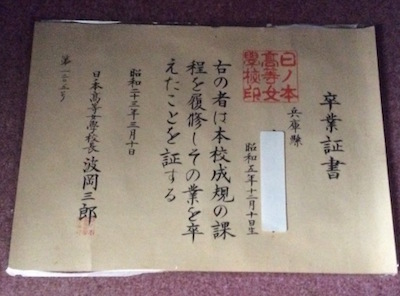 卒業証書
日ノ本
高等女
學校印
兵庫縣
昭和五年十二月十日生
右の者は本校成規の課
程を履修しその業を卒
えたことを証する
昭和二十三年三月十日
日ノ本高等女學校長 波岡三郎